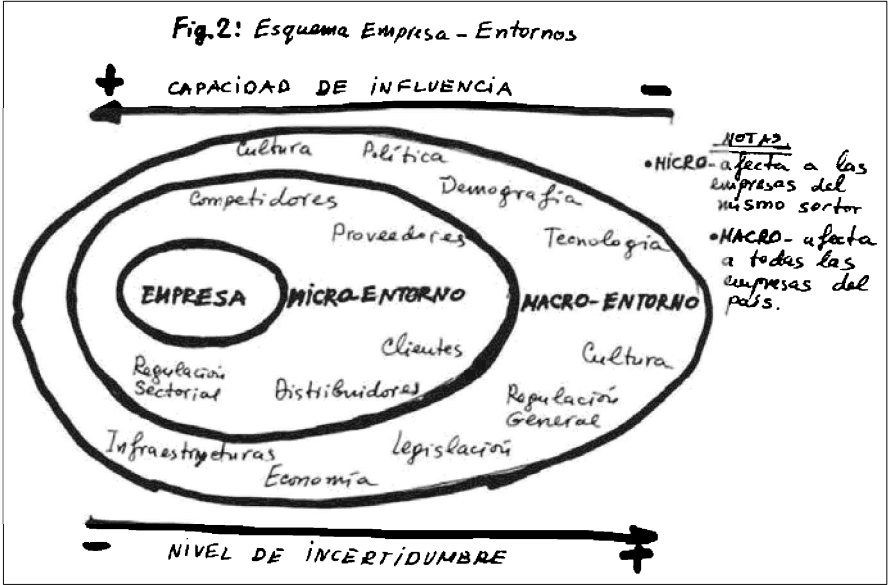 Fig.2: Esquema Empresa - Entornos
+ CAPACIDAD DE INFLUENCIA -
Cultura
Política
Demografía
Tecnología
Competidores
Proveedores
EMPRESA
MICRO-ENTORNO
MACRO-ENTORNO
Clientes
Cultura
Regulación
Sectorial
Distribuidores
Regulación
General
Infraestructuras
Legislación
Economía
- NIVEL DE INCERTIDUMBRE +
NOTAS
•MICRO- afecta a las
empresas del
mismo sector
•MACRO- afecta
a todas las
empresas del
país.